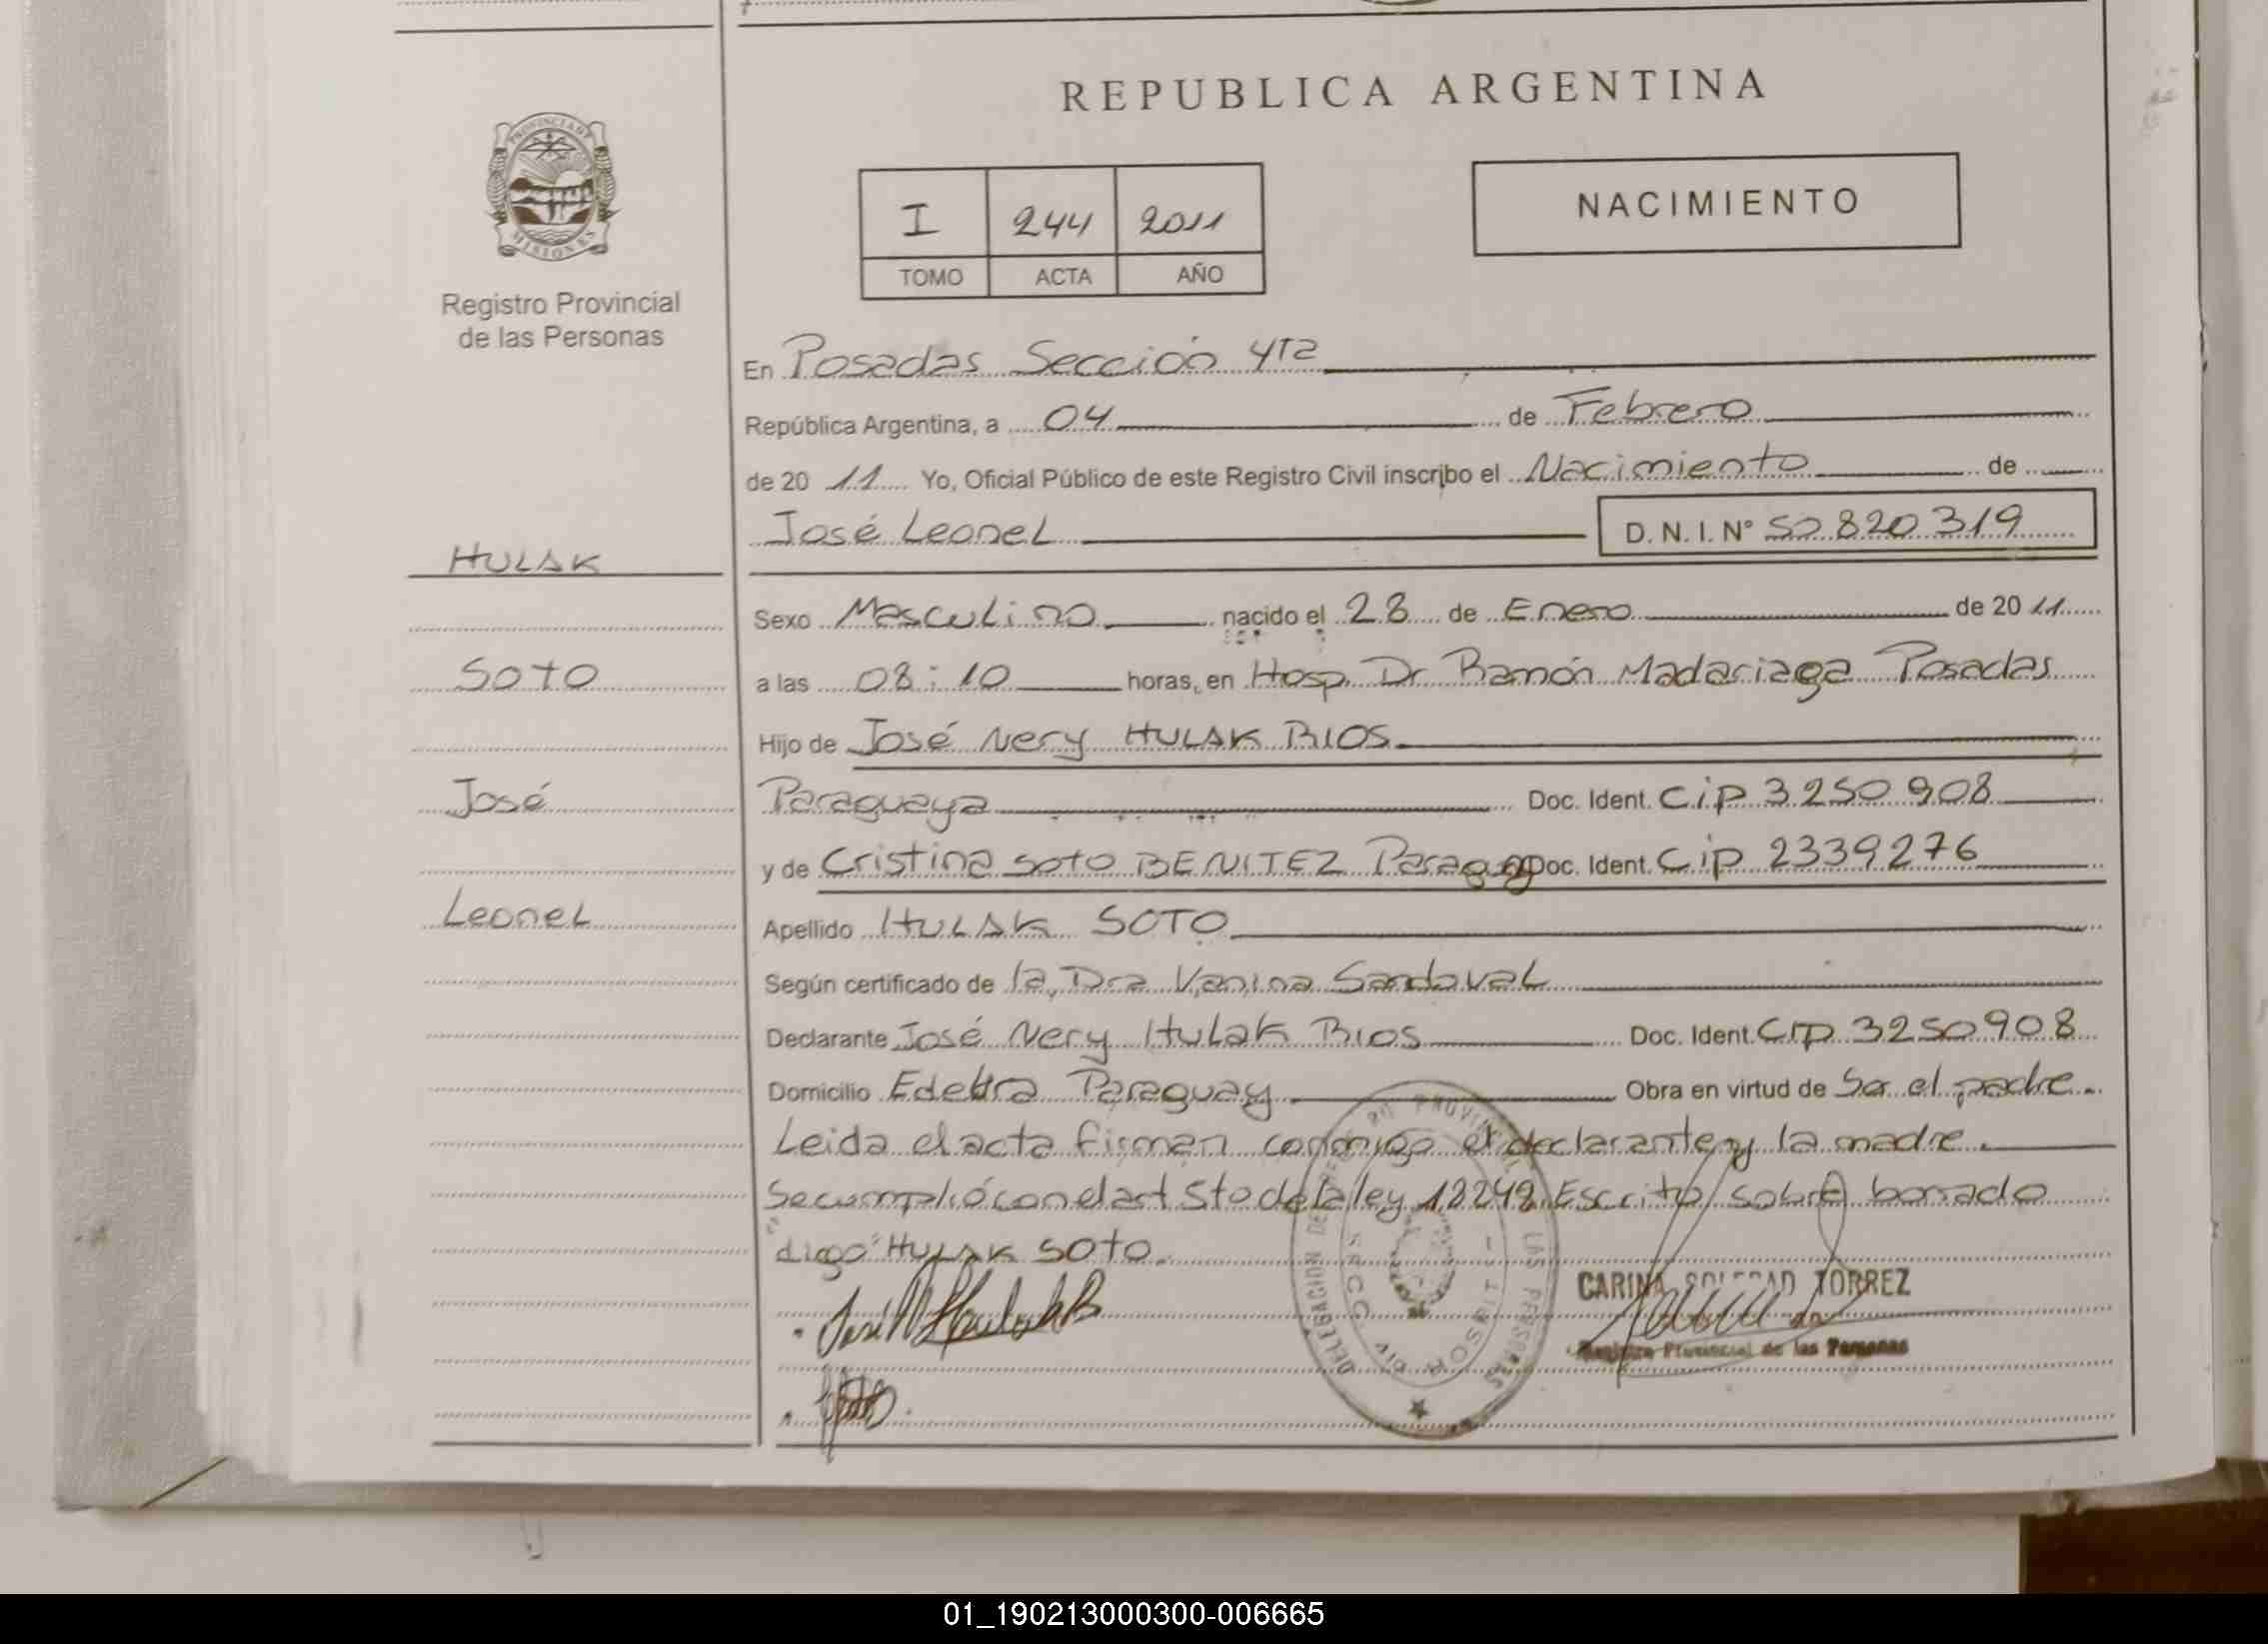 REPUBLICA ARGENTINA
PROVINCIA DE
MISIONES
Registro Provincial
de las Personas
I 244 2011
TOMO ACTA AÑO
NACIMIENTO
En Posadas Sección 4ta
República Argentina, a 04 de Febrero
de 20 11 Yo, Oficial Público de este Registro Civil inscribo el Nacimiento de
José Leonel D. N. I. Nº 50.820.319
HULAK
Sexo Masculino nacido el 28 de Enero de 20 11
SOTO
a las 08:10 horas, en Hosp. Dr Ramón Madariaga Posadas
Hijo de José Nery HULAK RIOS
José
Paraguaya Doc. Ident. CiP 3250908
y de Cristina SOTO BENITEZ Doc. Ident. CiP 2339276
Leonel
Apellido HULAK SOTO
Según certificado de la Dra Vanina Sandoval
Declarante José Nery Hulak Rios Doc. Ident. CIP 3250908
Domicilio Paraguay Obra en virtud de Ser el padre.
Leida el acta firman conmigo el declarante y la madre.
Se cumplió con el art 5to de la ley 18248. Escrito sobre borrado
digo "HULAK SOTO.
CARINA SOLEDAD TORREZ
Registro Provincial de las Personas
01_190213000300-006665